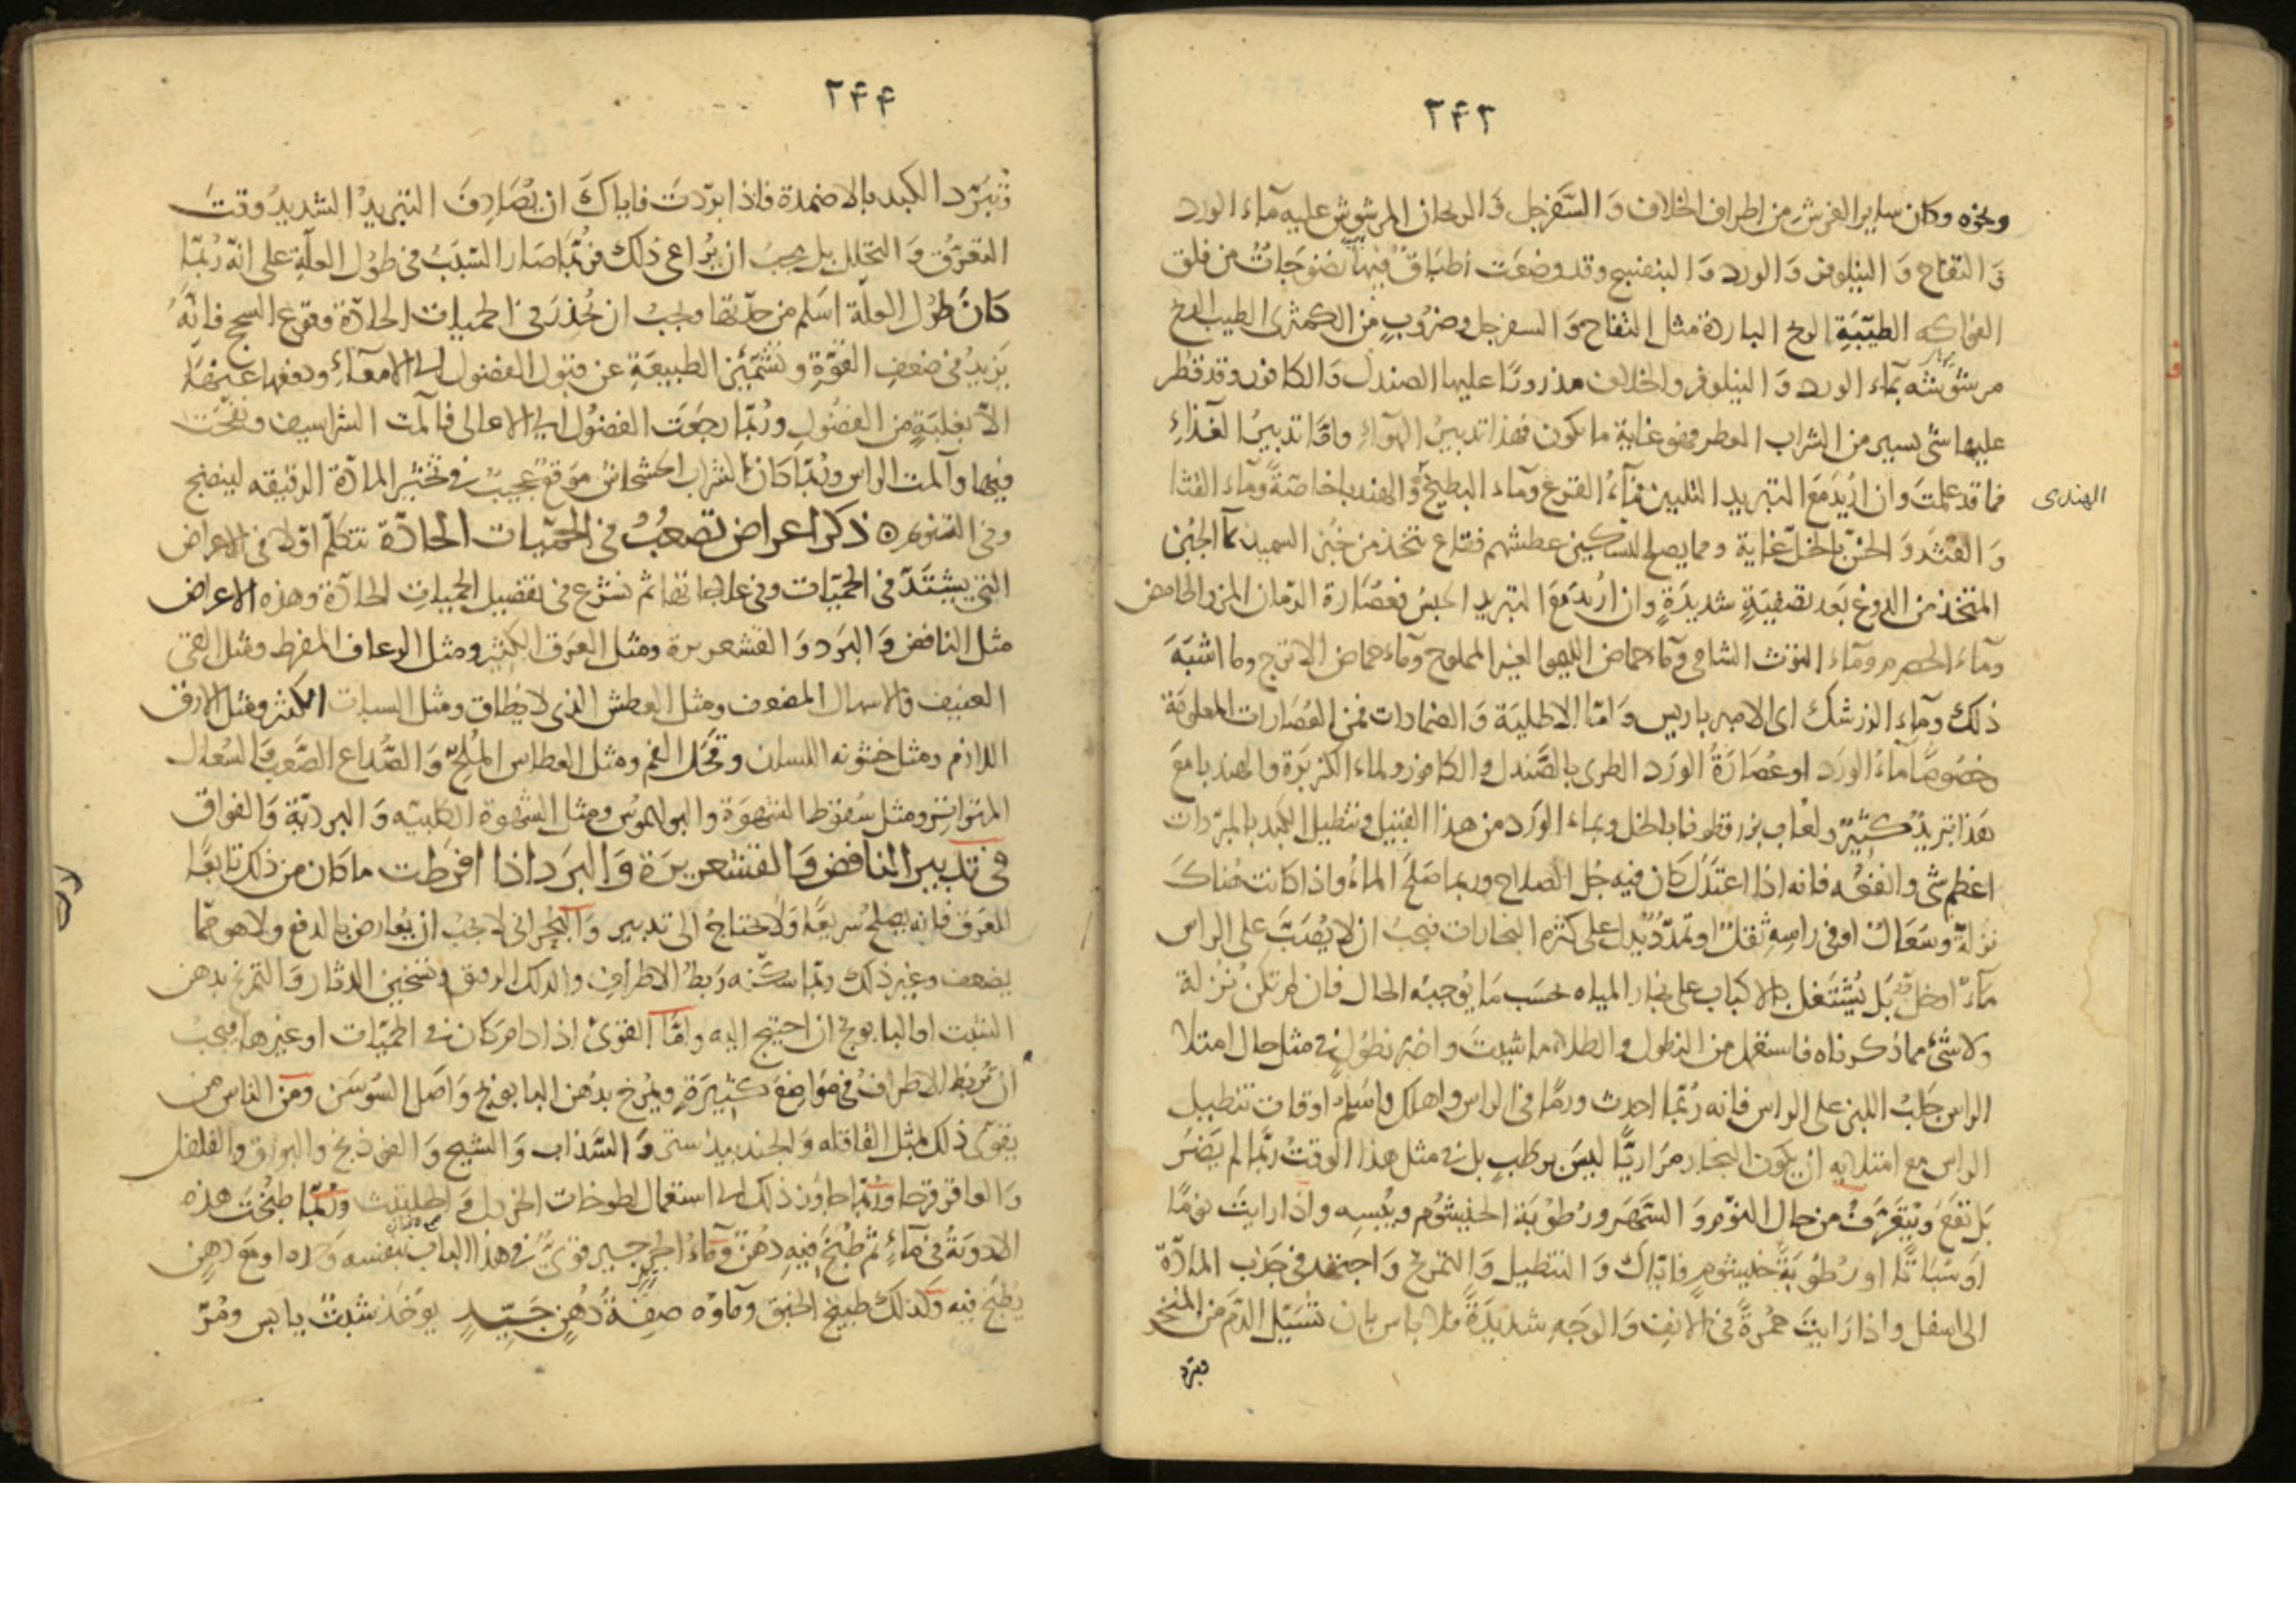 ٢٤٣
ونحوه وكان ساير الفرش من اطراف الخلاف وَ السَّفَرجل وَ الريحان المرشوش عليه مآء الورد
وَ التفاح وَ النيلوفر وَ الورد وَ البنفسج وقد وضعَت اطبَاق فيها نضوجَات من فلق
الفواكه الطيّبَةِ الريح الباردة مثل التفاح وَ السفرجل وضرُوبٍ من الكمثرى الطيب الريح
مرشوشه بمآء الورد وَ النيلوفر والخلاف مذرورًا عليها الصندل وَ الكافور وقد قطر
عليها شئ يسير من الشراب العطر فهو غاية ما يكون فهذا تدبيرُ الهوآءِ وامّا تدبيرُ الغذآءِ
فما قد علمتَ وان اُريدَ معَ التبريد التليين فمآءُ القرع ومآء البطيخ وَ الهندبا خاصّةً ومآء القثا
الهندى
وَ القثد وَ الخسّ بالخل غاية ومما يصلح لتسكين عطشهم فقاع يتخذ من خبز السميد بمآ الجبن
المتخذ من الدوغ بَعد تصفيَةٍ شديدَةٍ وان اُريدَ معَ التبريد الحبسُ فعصَارة الرّمان المزّ والحامض
ومآءَ الحصرم ومآءَ التوث الشامى وَمآء حماض الليمو الغير المملوح ومآء حماض الاترج وما اشبَهَ
ذلك ومآء الزرشك اى الامبرباريس وَ امّا الاطليَة وَ الضمادات فمن العُصَارات المعلومَة
خصُوصًا مآءُ الورَد او عُصَارَةُ الورَد الطرى بالصَّندل والكافور ولماء الكزبرَة والهندبا معَ
هَذا تبريدٌ كثيرٌ ولعَاب بزرقطونا بالخل وبماء الورَد من هذا القبيل وتنطيل الكبد بالمبرّدات
اعظم شئ وانفعُه فانه اذا اعتدَل كان فيه جُل الصلاح وربما صَلحَ المآءُ واذا كانت هُناكَ
نَزلةٌ وسعَالٌ او فى راسِهِ ثقلٌ او تمدّدٌ يدل على كثره البخارات فيجبُ ان لا يُصَبَّ على الراس
مآءً او خل بَل يُشْتَغل بالاكباب على بخار المياه حسَب مَا يُوجبُه الحال فان لم تكن نزلة
ولا شئ مما ذكرناه فاستعمل من النطول والطلاء ما شيتَ واضر نطُول فى مثل حال امتلا
الراس حَلبُ اللبن على الراس فانه رُبّما احدث ورمًا فى الراس واهلك واسلم اوقات تنطيل
الراس مع امتلائه ان يكون البخار مرَاريًّا ليسَ برَطبٍ بل فى مثل هذا الوقت رُبّما لم يَضرّ
بَل نفعَ ويُتعَرّف من حال النوم وَ السَّهر ورُطوبَة الخيشوُم ويُبسِه واذا رايتَ نومًا
اوَ سُبَاتًا او رُطوُبَة خيشُومٍ فايّاك وَ التنطيل وَ التمريخ وَ اجتهد فى جَذب المادّة
الى اسفل واذا رَايتَ حُمْرةً فى الانف وَ الوَجهِ شديدَةً فلا باس بان تُسَيّل الدّم من المنخر
وتبرد
٢٤٤
وَ تبَرّد الكبد بالاضمدة فاذا برّدتَ فاياكَ ان يُصَادِفَ التبريدُ الشديدُ وقتَ
التعرّق وَ التحلل بل يجبُ ان يُراعى ذلك فرُبّما صَار السّبَبُ فى طُول العلّة على انّه رُبّما
كانَ طوُل العلّة اسَلم من حدّتها ويجبُ ان تُحذَرَ فى الحميات الحادّة وقوع السحج فانّهُ
يَزيدُ فى ضعفِ القوَّةِ وتشمَئِزّ الطبيعَة عن قبُول الفضول الى الامعآءِ ودفعها عنها
الاّ بغلبَةٍ من الفضُول ورُبّما رجعَت الفضُول الى الاعالى فآلمت الشراسيف ونفخَت
فيها وآلمت الراس ورُبّما كان لشراب الخشخاش مَوقعٌ عجيبٌ فى تخثير المادّة الرقيقه لينضج
وفى التنويم ۞ ذكر اعراض تصعُبُ فى الحمّيات الحادّة نتكلّم اوّلا فى الاعراض
التى تشتَدّ فى الحمّيات وفى علاجاتها ثم نشرَع فى تفصيل الحميات الحادّة وهذه الاعراض
مثل النافض وَ البَرد وَ القشعريرة ومثل العَرَق الكثير ومثل الرعاف المفرط ومثل القئ
العنيف والاسهال المضعف ومثل العطش الذى لا يُطاق ومثل السبات الكثير ومثل الارق
اللازم ومثل خشونه اللسان وقحَل الفم ومثل العطاس المُلحّ وَ الصُّداع الصَّعب وَ السُعال
المتواتر ومثل سُقوط الشهوَة والبوليموُس ومثل الشهوة الكلبيّه وَ البرديّة وَ الفواق
فى تدبير النافض وَ القشعريرَة وَ البَرد اذا افرَطت ما كان من ذلك تابعًا
للعَرق فانه يصلح سريعًا وَلا يحتاجُ الى تدبير وَ البُحرانى لا يجبُ ان يُعارض بالدفع ولا هو ممّا
يضعف وغير ذلك ربّما سكّنه رَبط الاطرافِ والدلك الرفيق وتسخين الدثار وَ التمريخ بدهن
الشبت او البابونج ان احتيج اليه وامّا القوىُّ اذا دام كان فى الحمّيات او غيرها فيجبُ
ان تُربَط الاطرافُ فى مَواضِعَ كثيرَة ويُمرخ بدُهن البابونج وَ اصل السُوسَن ومن الناس من
يقوّى ذلك بمثل القاقله وَ الجندبيدستر وَ السَّذاب وَ الشيح وَ الفوذنج والبورق والفلفل
وَ العاقرقرحا ورُبّما جاوزَ ذلك الى استعمال لطوخات الخردل وَ الحلتيث ورُبّما طُبختَ هذه
الادويَةُ فى مآءٍ ثم طُبخ فيهِ دُهنٌ ومآءُ الجرجير قوىٌّ فى هذا الباب بنفسه وَحده او مَع دُهنٍ
يُطبَخ فيه وَكذلك طبيخ الحبق ومآوُه صِفَةُ دُهنٍ جَيّدٍ يوُخَذ شبتٌ يابس ومُرّ